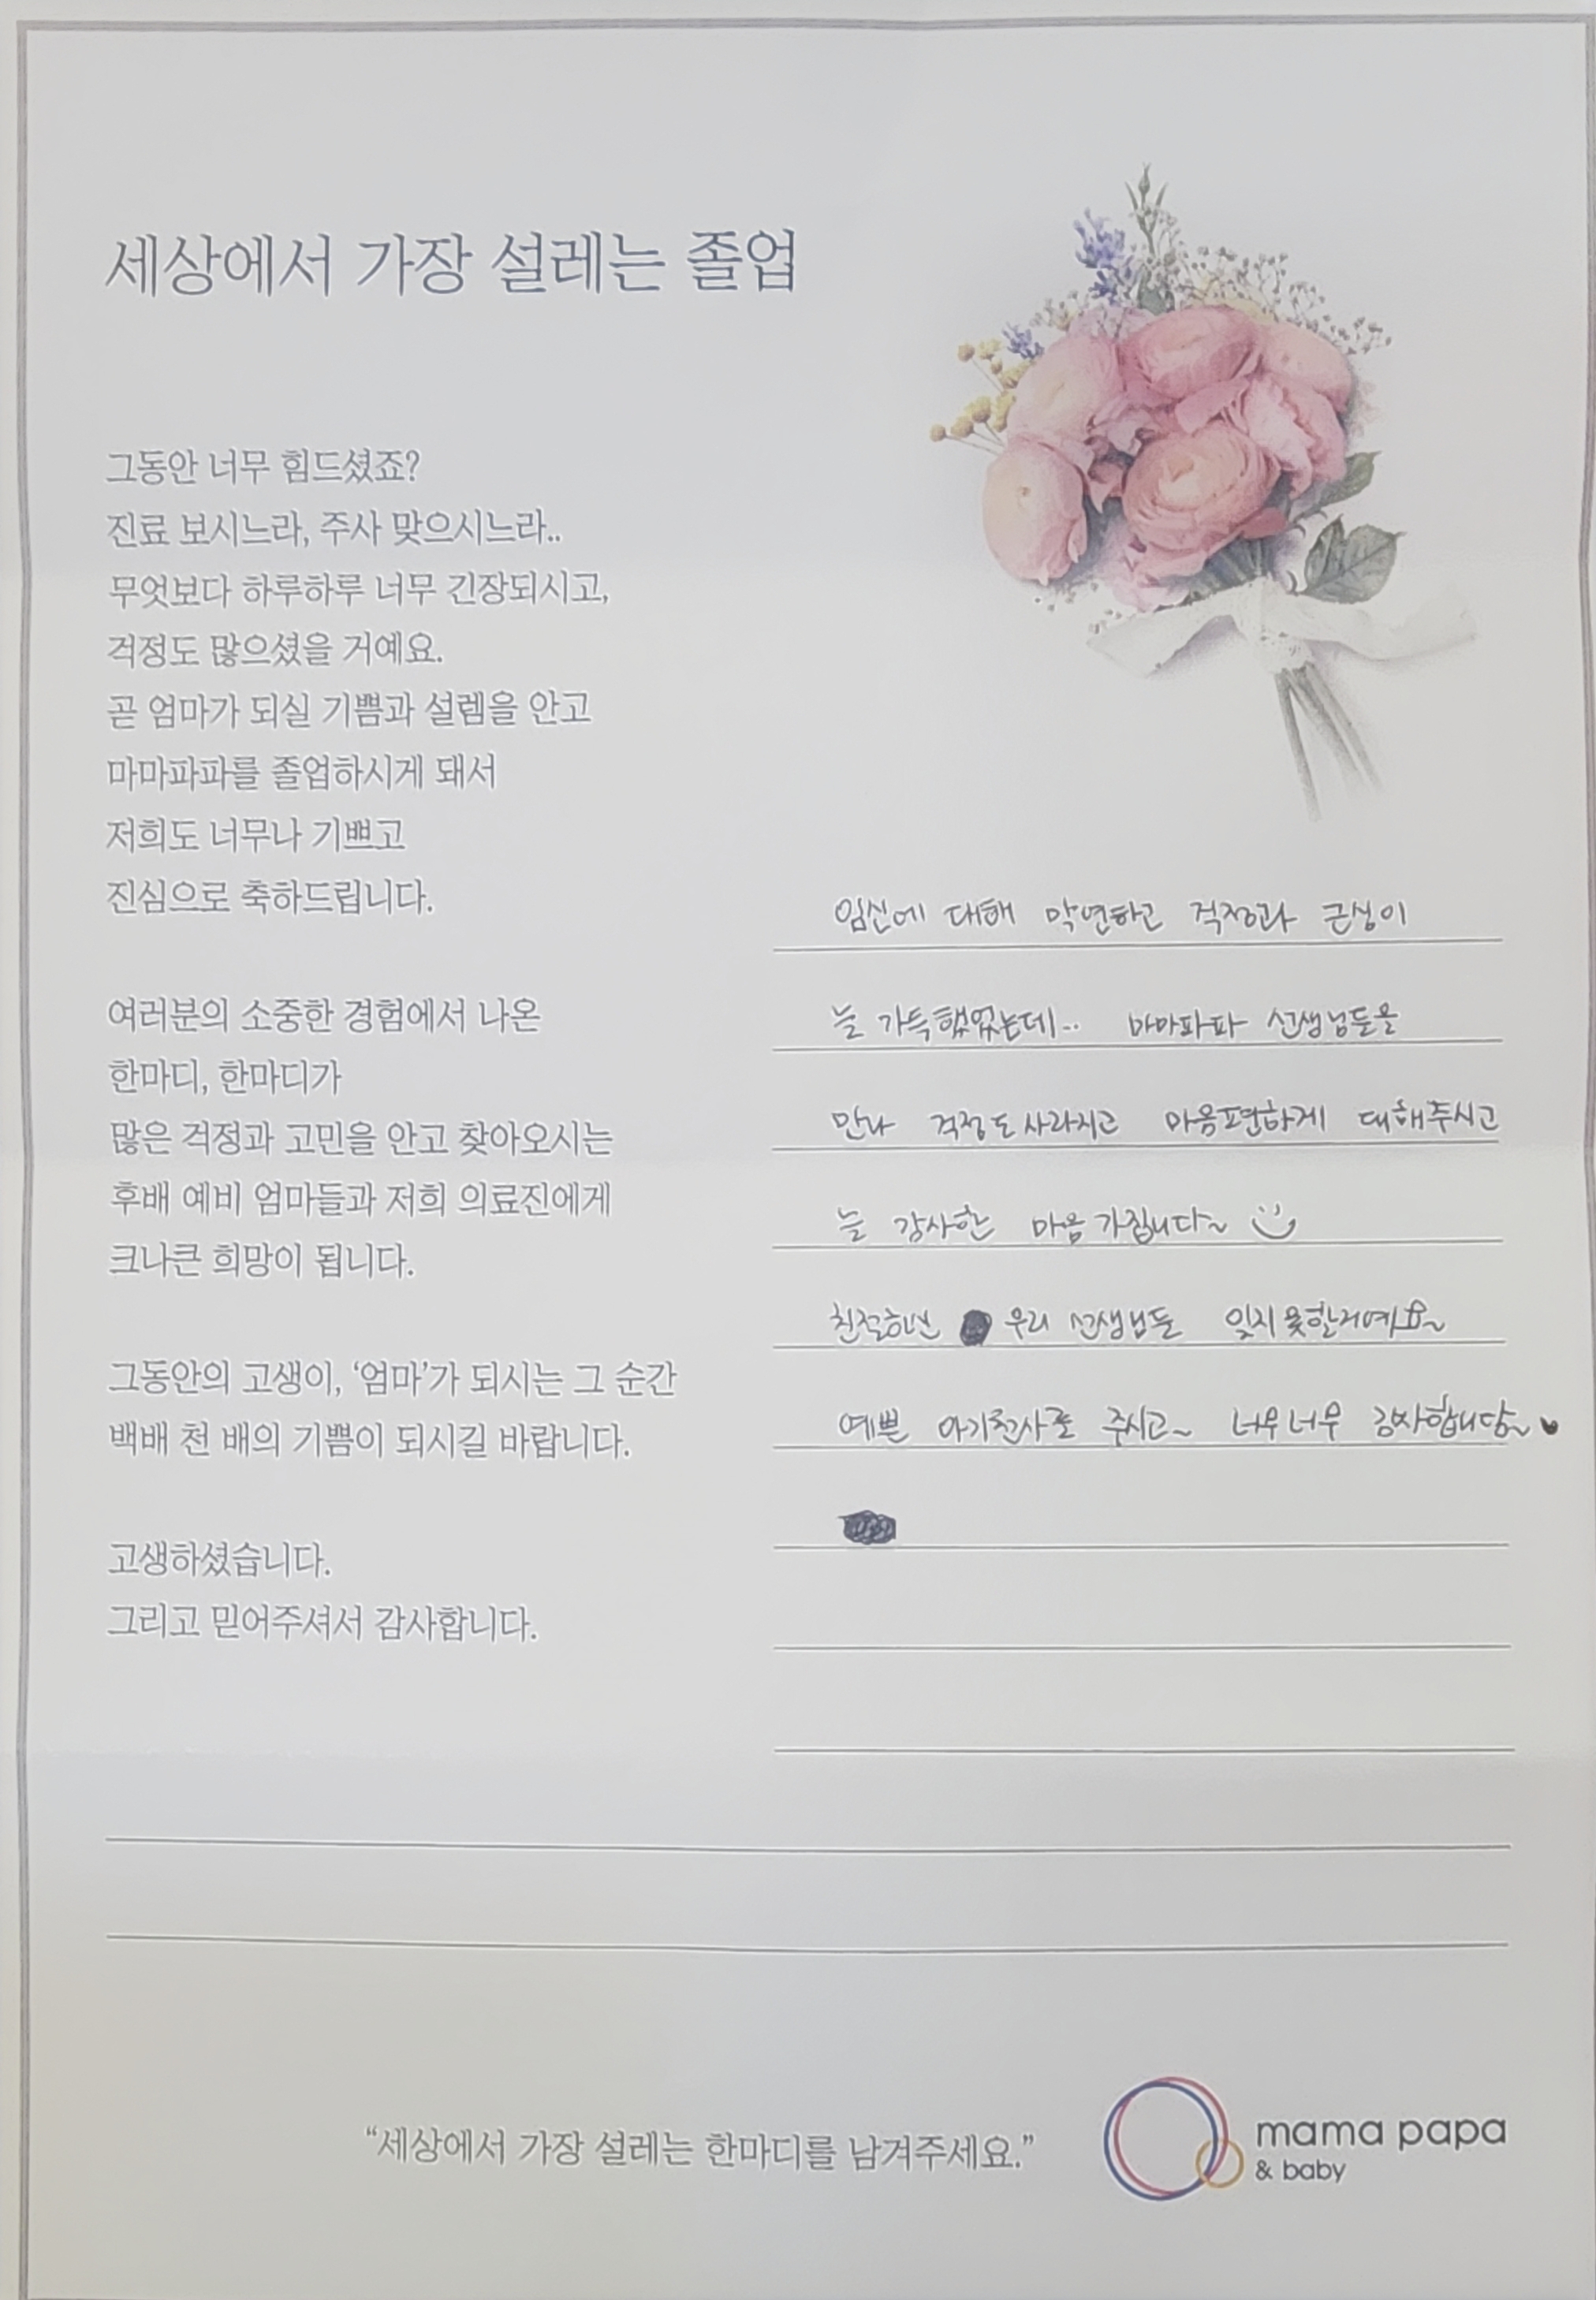 세상에서 가장 설레는 졸업
그동안 너무 힘드셨죠?
진료 보시느라, 주사 맞으시느라..
무엇보다 하루하루 너무 긴장되시고,
걱정도 많으셨을 거예요.
곧 엄마가 되실 기쁨과 설렘을 안고
마마파파를 졸업하시게 돼서
저희도 너무나 기쁘고
진심으로 축하드립니다.
여러분의 소중한 경험에서 나온
한마디, 한마디가
많은 걱정과 고민을 안고 찾아오시는
후배 예비 엄마들과 저희 의료진에게
크나큰 희망이 됩니다.
그동안의 고생이, ‘엄마’가 되시는 그 순간
백배 천 배의 기쁨이 되시길 바랍니다.
고생하셨습니다.
그리고 믿어주셔서 감사합니다.
임신에 대해 막연하고 걱정과 근심이
늘 가득했었는데.. 마마파파 선생님들을
만나 걱정도 사라지고 마음편하게 대해주시고
늘 감사한 마음 가집니다~
친절하신 우리 선생님들 잊지못할거예요~
예쁜 아기천사를 주시고~ 너무너무 감사합니당~ ♥
“세상에서 가장 설레는 한마디를 남겨주세요.”
mama papa
& baby